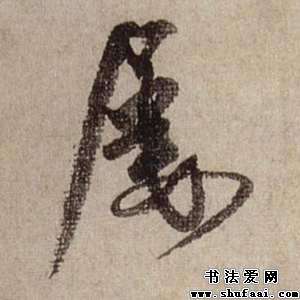 屡
书法爱网
www.shufaai.com